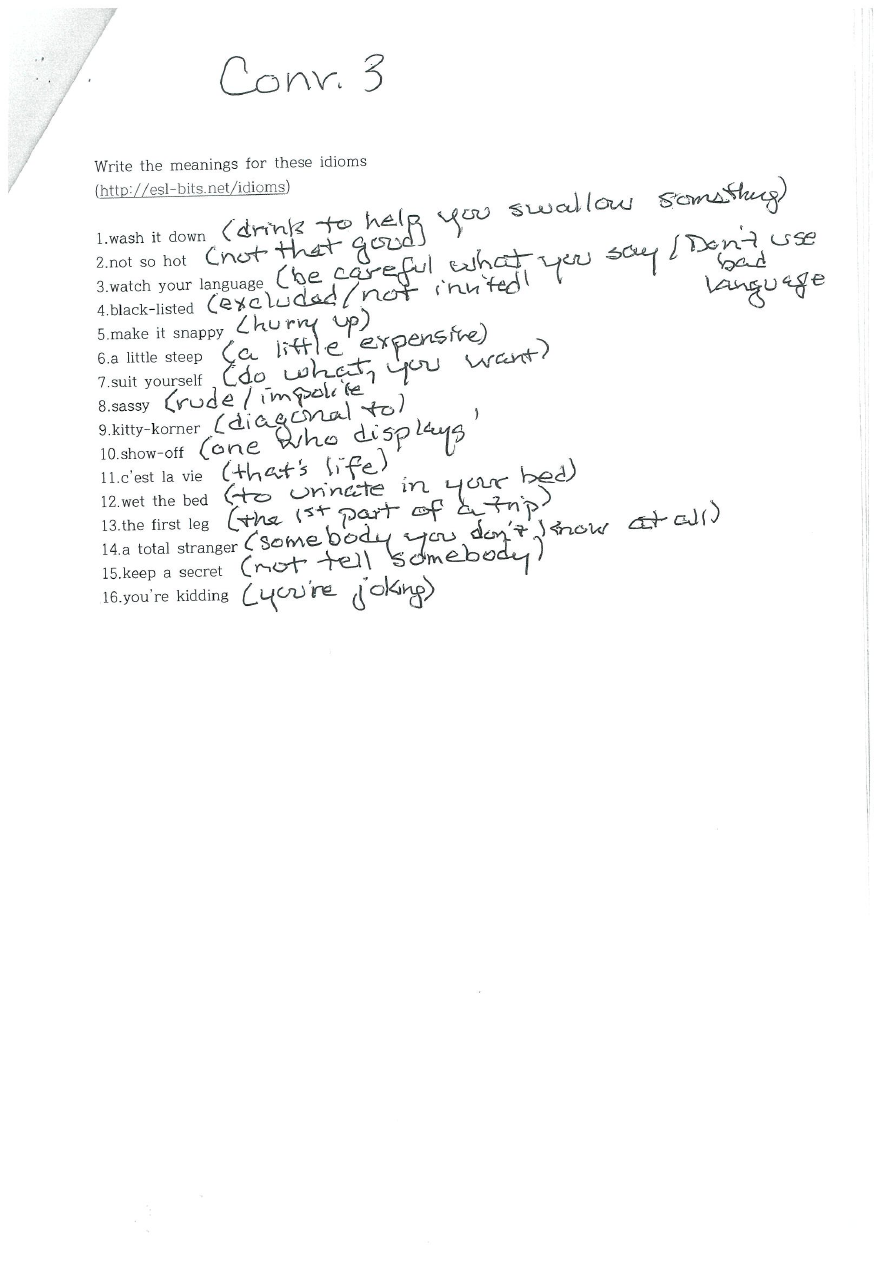 Conv. 3
Write the meanings for these idioms
(http://esl-bits.net/idioms)
1.wash it down (drink to help you swallow something)
2.not so hot (not that good)
3.watch your language (be careful what you say / Don't use bad language
4.black-listed (excluded/not invited)
5.make it snappy (hurry up)
6.a little steep (a little expensive)
7.suit yourself (do what you want)
8.sassy (rude/impolite
9.kitty-korner (diagonal to)
10.show-off (one who displays)
11.c'est la vie (that's life)
12.wet the bed (to urinate in your bed)
13.the first leg (the 1st part of a trip)
14.a total stranger (somebody you don't know at all)
15.keep a secret (not tell somebody)
16.you're kidding (you're joking)